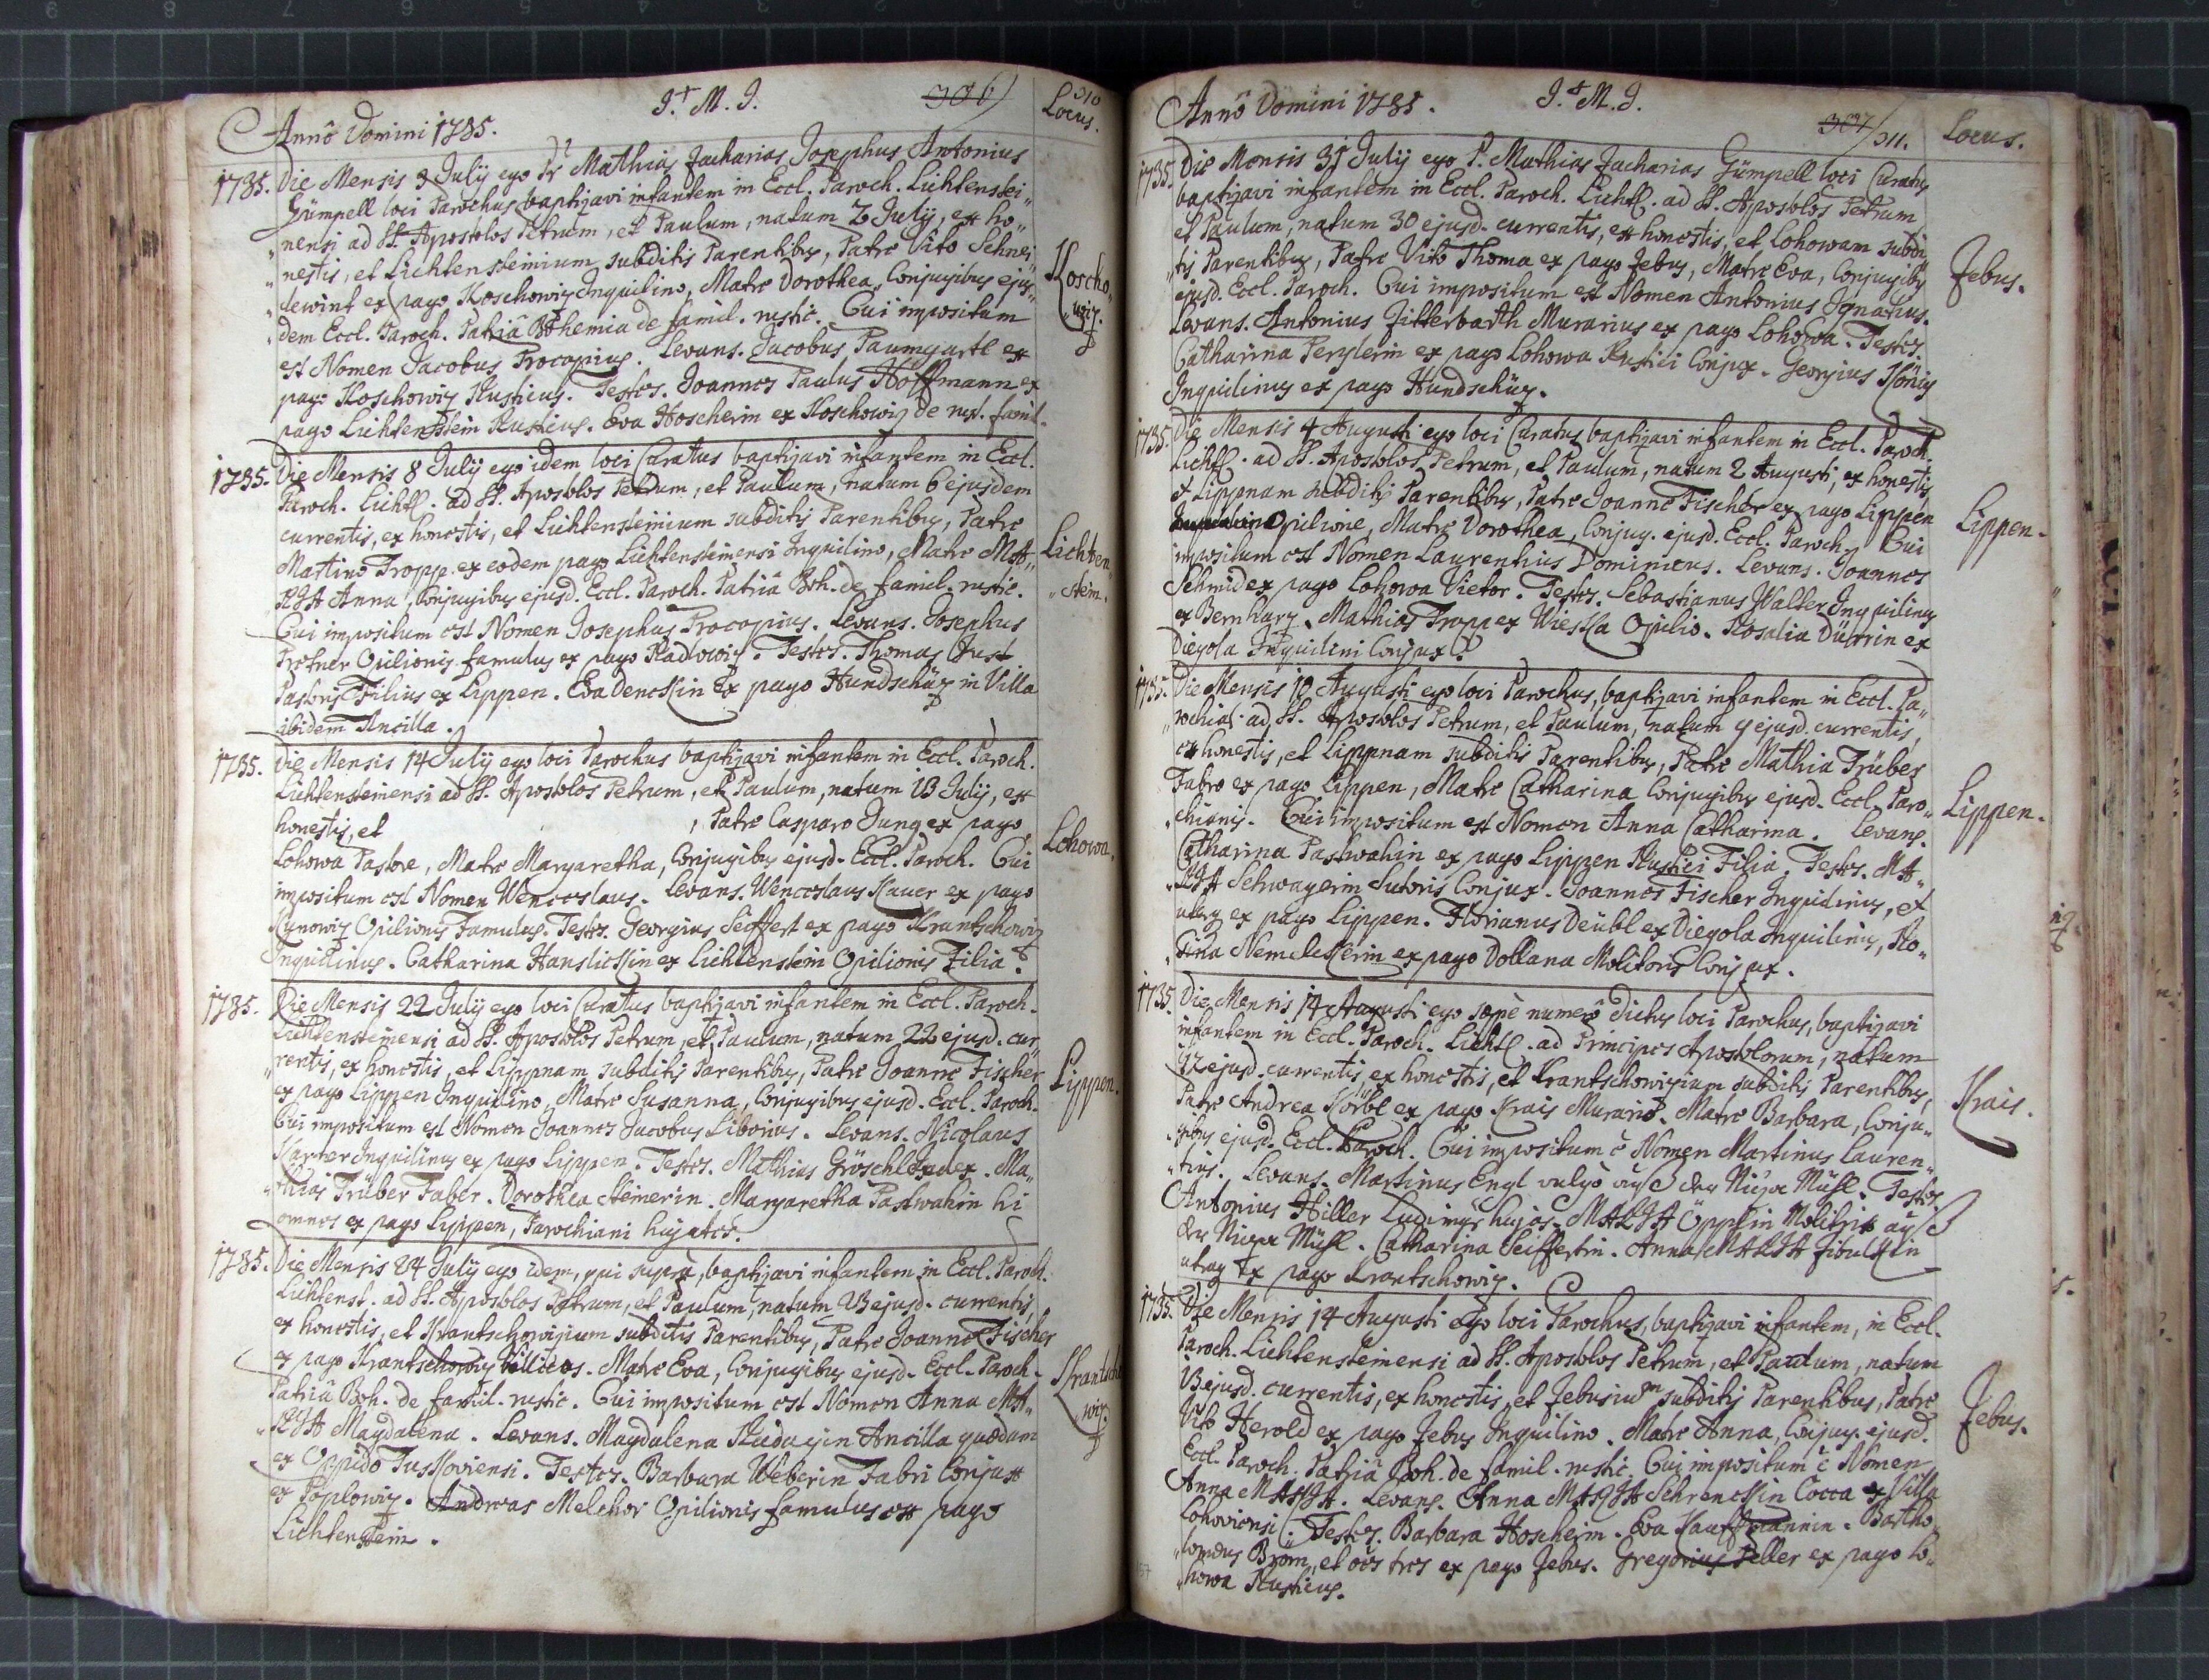 Annô Domini 1735. J. M. J. 306 310
Locus.
1735. Die Mensis 3 July ego Fr Mathias Zacharias Josephus Antonius
Gümpell loci Parochus baptizavi infantem in Eccl. Paroch. Lichtenstei„
„nensi ad SS. Apostolos Petrum, et Paulum, natum 2 July, ex ho„
„nestis, et Lichtensteinium subditis Parentibus, Patre Vito Schnei„
„dewint ex pago Koschowiz Inquilino, Matre Dorothea, Conjugibus ejus„
„dem Eccl. Paroch. Patriâ Bohemia de famil. rustic. Cui impositum
est Nomen Jacobus Procopius. Levans. Jacobus Paumgartl ex
pago Koschowiz Rusticus. Testes. Joannes Paulus Hoffmann ex
pago Lichtenstein Rusticus. Eva Hoscherin ex Koschowiz de rust. famil.
Koscho„
„wiz.
1735. Die Mensis 8 July ego idem loci Curatus baptizavi infantem in Eccl.
Paroch. Lichtl. ad SS. Apostolos Petrum, et Paulum, natum 6 ejusdem
currentis, ex honestis, et Lichtensteinium subditis Parentibus, Patre
Martino Tropp ex eodem pago Lichtensteinensi Inquilino, Matre MA„
RJA Anna, Conjugibus ejusd. Eccl. Paroch. Patriâ Boh. de famil. rustic.
Cui impositum est Nomen Josephus Procopius. Levans. Josephus
Opilionis famulus ex pago Radlowiz. Testes. Thomas Just
Pastoris Filius ex Lippen. Eva Denckin Ex pago Hundschüz in Villa
ibidem Ancilla.
Lichten„
„stein.
1735. Die Mensis 14 July ego loci Parochus baptizavi infantem in Eccl. Paroch.
Lichtensteinensi ad SS. Apostolos Petrum, et Paulum, natum 13 July, ex
honestis, et , Patre Casparo Jung ex pago
Lohowa Pastore, Matre Margaretha, Conjugibus ejusd. Eccl. Paroch. Cui
impositum est Nomen Wenceslaus. Levans. Wenceslaus Kauer ex pago
Kunowiz Opilionis Famulus. Testes. Georgius Seiffert ex pago Krantschowiz
Inquilinus. Catharina Hanslickin ex Lichtenstein Opilionis Filia.
Lohowa.
1735. Die Mensis 22 July ego loci Curatus baptizavi infantem in Eccl. Paroch.
Lichtensteinensi ad SS. Apostolos Petrum, et Paulum, natum 22 ejusd. cur„
„rentis, ex honestis, et Lippnam subditis Parentibus, Patre Joanne Fischer
ex pago Lippen Inquilino, Matre Susanna, Conjugibus ejusd. Eccl. Paroch.
Cui impositum est Nomen Joannes Jacobus Liborius. Levans. Nicolaus
Karrer Inquilinus ex pago Lippen. Testes. Mathias Gröschl Judex. Ma„
„thias Trüber Faber. Dorothea Steinerin. Margaretha Pastwahin hi
omnes ex pago Lippen, Parochiani hujates.
Lippen.
1735. Die Mensis 24 July ego idem, qui supra, baptizavi infantem in Eccl. Paroch.
Lichtenst. ad SS. Apostolos Petrum, et Paulum, natum 23 ejusd. currentis,
ex honestis, et Krantschowizium subditis Parentibus, Patre Joanne Fischer
ex pago Krantschowiz Villicus. Matre Eva, Conjugibus ejusd. Eccl. Paroch.
Patriâ Boh. de famil. rustic. Cui impositum est Nomen Anna MA„
„RJA Magdalena. Levans. Magdalena Ancilla quædam
ex Oppido Tuskoviensi. Testes. Barbara Weberin Fabri Conjux
ex Poplowiz. Andreas Melchor Opilionis famulus ex pago
Lichtenstein.
Krantscho
„wiz.
Annô Domini 1735. J. M. J. 307/311. Locus.
1735. Die Mensis 31 July ego P. Mathias Zacharias Gümpell loci Curatus
baptizavi infantem in Eccl. Paroch. Lichtl. ad SS. Apostolos Petrum
et Paulum, natum 30 ejusd. currentis, ex honestis, et Lohowam subdi„
„tis Parentibus, Patre Vito Thoma ex pago Jebus, Matre Eva, Conjugibus
ejusd. Eccl. Paroch. Cui impositum est Nomen Antonius Ignatius.
Levans. Antonius Zitterbarth Murarius ex pago Lohowa. Testes.
Catharina Perzlerin ex pago Lohowa Rustici Conjux. Georgius König
Inquilinus ex pago Hundschüz.
Jebus.
1735. Die Mensis 4 Augusti ego loci Curatus baptizavi infantem in Eccl. Paroch.
Lichtl. ad SS. Apostolos Petrum, et Paulum, natum 2 Augusti, ex honestis,
et Lippnam subditis Parentibus, Patre Joanne Fischer ex pago Lippen
Opilione, Matre Dorothea, Conjug. ejusd. Eccl. Paroch. Cui
impositum est Nomen Laurentius Dominicus. Levans. Joannes
Schmid ex pago Lohowa Vietor. Testes. Sebastianus Walter Inquilinus
ex Bernharz. Mathias Tropp ex Wieska Opilio. Rosalia Dürrin ex
Diegola Inquilini Conjux.
Lippen.
1735. Die Mensis 10 Augusti ego loci Parochus, baptizavi infantem in Eccl. Pa„
„rochial. ad SS. Apostolos Petrum, et Paulum, natum 9 ejusd. currentis,
ex honestis, et Lippnam subditis Parentibus, Patre Mathia Trüber
Fabro ex pago Lippen, Matre Catharina Conjugibus ejusd. Eccl. Paro„
„chianis. Cui impositum est Nomen Anna Catharina. Levans.
Catharina Pastwahin ex pago Lippen Rustici Filia. Testes. MA„
„RJA Schwagerin Sutoris Conjux. Joannes Fischer Inquilinus, et
uterq ex pago Lippen. Florianus Deübl ex Diegola Inquilinus, Ro„
„sina Nemeleskerin ex pago Dollana Molitoris Conjux.
Lippen.
1735. Die Mensis 14 Augusti ego sæpè numerô dictus loci Parochus, baptizavi
infantem in Eccl. Paroch. Lichtl. ad Principes Apostolorum, natum
12 ejusd. currentis, ex honestis, et Krantschowizium subditis Parentibus,
Patre Andrea Korbl ex pago Krais Murario. Matre Barbara, Conju„
„gibus ejusd. Eccl. Paroch. Cui impositum ē Nomen Martinus Lauren„
„tius. Levans. Martinus Engl vulgò auß der Mühl. Testes
Antonius Hiller Ludimgr hujas. MARJA Öpplin Molitrix auß
der Mühl. Catharina Seiffertin. Anna MARJA Zibulkin
utraq Ex pago Krantschowiz.
Krais.
1735. Die Mensis 14 Augusti Ego loci Parochus, baptizavi infantem, in Eccl.
Paroch. Lichtensteinensi ad SS. Apostolos Petrum, et Paulum, natum
13 ejusd. currentis, ex honestis, et Jebusium subditis Parentibus, Patre
Vito Herold ex pago Jebus Inquilino. Matre Anna, Conjug. ejusd.
Eccl. Paroch. Patriâ Boh. de famil. rustic. Cui impositum ē Nomen
Anna MARJA. Levans. Anna MARJA Schrenckin Cocca ex Villa
Lohoviensi. Testes. Barbara Hoscherin. Eva Kauffmannin. Bartho„
„lomæus Brom, et oēs tres ex pago Jebus. Gregorius Peller ex pago Lo„
„howa Rusticus.
Jebus.